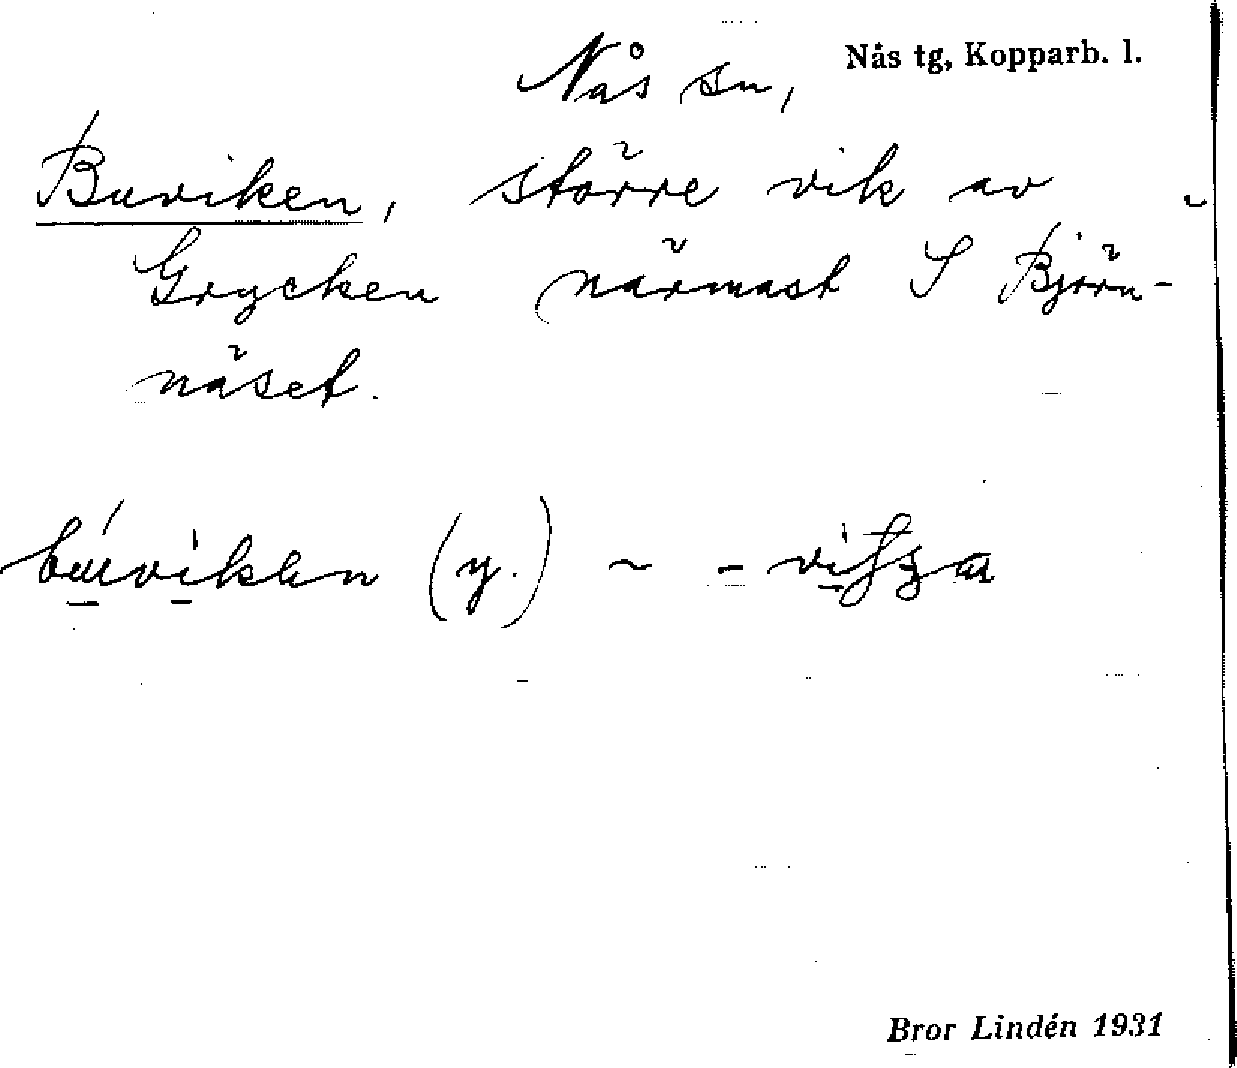 Nås tg, Kopparb. l.
Nås sn,
Buviken, större vik av
Grycken närmast S Björn-
näset.
(y.) ~ -
Bror Lindén 1931